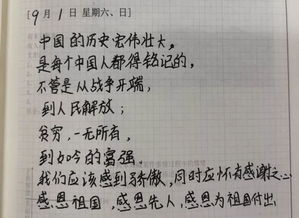 [9月1日 星期六、日]
中国的历史宏伟壮大,
是每个中国人都得铭记的,
不管是从战争开端,
到人民解放;
贫穷,一无所有,
到如今的富强.
我们应该感到骄傲,同时应怀有感谢之心
感恩祖国,感恩先人,感恩为祖国付出